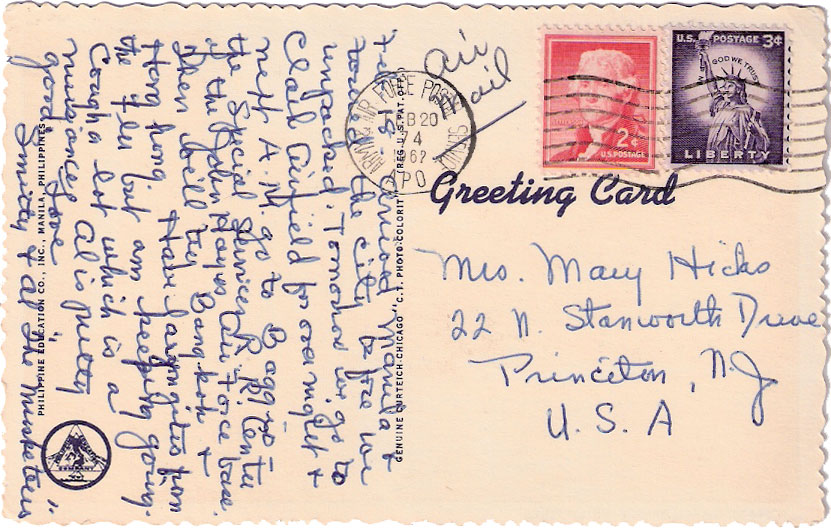 Feb 19 Arrived Manila &
toured the city before we
unpacked. Tomorrow we go to
Clark Airfield for overnight &
next A.M. go to Baggio
the Special Services R.R. Center
of the John Hayes Air Force base.
Then will try Bangkok &
Hong Kong. Have laryngitis from
the flu but am keeping going.
Cough a lot which is a
nuisance. Al is pretty
good. Love
Smitty & Al "The Musketeers"
PHILIPPINE EDUCATION CO., INC., MANILA, PHILIPPINES
GENUINE CURTEICH-CHICAGO "C.T. PHOTO-COLORIT" (REG. U.S. PAT. OFF.)
Air
Mail
ARMY & AIR FORCE POSTAL SERVICE
FEB 20
74
1962
APO
2¢
U.S. POSTAGE
U.S. POSTAGE 3¢
IN GOD WE TRUST
LIBERTY
Greeting Card
Mrs. Mary Hicks
22 N. Stanworth Drive
Princeton, N.J
U.S.A